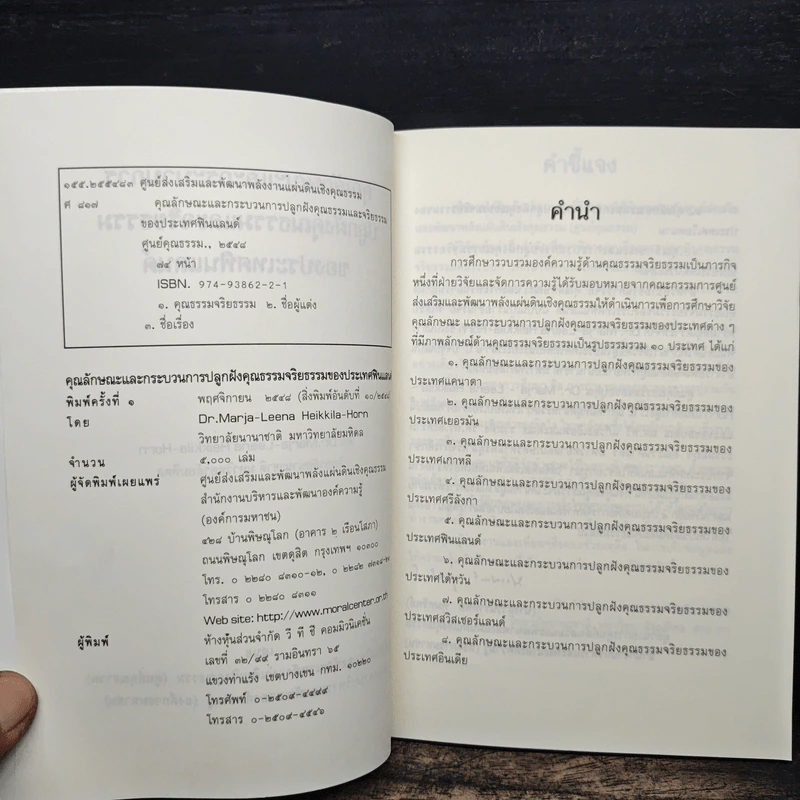 ๑๕๕.๒๕๕๔๘๓ ศูนย์ส่งเสริมและพัฒนาพลังงานแผ่นดินเชิงคุณธรรม
ศ ๘๑๗ คุณลักษณะและกระบวนการปลูกฝังคุณธรรมและจริยธรรม
ของประเทศฟินแลนด์
ศูนย์คุณธรรม., ๒๕๔๘
๗๔ หน้า
ISBN. 974-93862-2-1
๑. คุณธรรมจริยธรรม ๒. ชื่อผู้แต่ง
๓. ชื่อเรื่อง
คุณลักษณะและกระบวนการปลูกฝังคุณธรรมจริยธรรมของประเทศฟินแลนด์
พิมพ์ครั้งที่ ๑ พฤศจิกายน ๒๕๔๘ (สิ่งพิมพ์อันดับที่ ๑๐/๒๕๔๘
โดย Dr.Marja-Leena Heikkila-Horn
วิทยาลัยนานาชาติ มหาวิทยาลัยมหิดล
จำนวน ๕,๐๐๐ เล่ม
ผู้จัดพิมพ์เผยแพร่ ศูนย์ส่งเสริมและพัฒนาพลังแผ่นดินเชิงคุณธรรม
สำนักงานบริหารและพัฒนาองค์ความรู้
(องค์การมหาชน)
๔๒๘ บ้านพิษณุโลก (อาคาร ๒ เรือนไสภา)
ถนนพิษณุโลก เขตดุสิต กรุงเทพฯ ๑๐๓๐๐
โทร. ๐ ๒๒๘๐ ๘๓๑๐-๑๒, ๐ ๒๒๘๒
โทรสาร ๐ ๒๒๘๐ ๘๓๑๑
Web site: http://www.moralcenter.or.th
ผู้พิมพ์ ห้างหุ้นส่วนจำกัด วี ที ซี คอมมิวนิเคชั่น
เลขที่ ๓๒/๙๙ รามอินทรา ๖๕
แขวงท่าแร้ง เขตบางเขน กทม. ๑๐๒๒๐
โทรศัพท์ ๐-๒๕๐๙-๔๔๙๙
โทรสาร ๐-๒๕๐๙-๔๕๔๖
คำนำ
การศึกษารวบรวมองค์ความรู้ด้านคุณธรรมจริยธรรมเป็นภารกิจ
หนึ่งที่ฝ่ายวิจัยและจัดการความรู้ได้รับมอบหมายจากคณะกรรมการศูนย์
ส่งเสริมและพัฒนาพลังแผ่นดินเชิงคุณธรรมให้ดำเนินการเพื่อการศึกษาวิจัย
คุณลักษณะ และกระบวนการปลูกฝังคุณธรรมจริยธรรมของประเทศต่าง ๆ
ที่มีภาพลักษณ์ด้านคุณธรรมจริยธรรมเป็นรูปธรรมรวม ๑๐ ประเทศ ได้แก่
๑. คุณลักษณะและกระบวนการปลูกฝังคุณธรรมจริยธรรมของ
ประเทศแคนาดา
๒. คุณลักษณะและกระบวนการปลูกฝังคุณธรรมจริยธรรมของ
ประเทศเยอรมัน
๓. คุณลักษณะและกระบวนการปลูกฝังคุณธรรมจริยธรรมของ
ประเทศเกาหลี
๔. คุณลักษณะและกระบวนการปลูกฝังคุณธรรมจริยธรรมของ
ประเทศศรีลังกา
๕. คุณลักษณะและกระบวนการปลูกฝังคุณธรรมจริยธรรมของ
ประเทศฟินแลนด์
๖. คุณลักษณะและกระบวนการปลูกฝังคุณธรรมจริยธรรมของ
ประเทศไต้หวัน
๗. คุณลักษณะและกระบวนการปลูกฝังคุณธรรมจริยธรรมของ
ประเทศสวิสเซอร์แลนด์
๘. คุณลักษณะและกระบวนการปลูกฝังคุณธรรมจริยธรรมของ
ประเทศอินเดีย